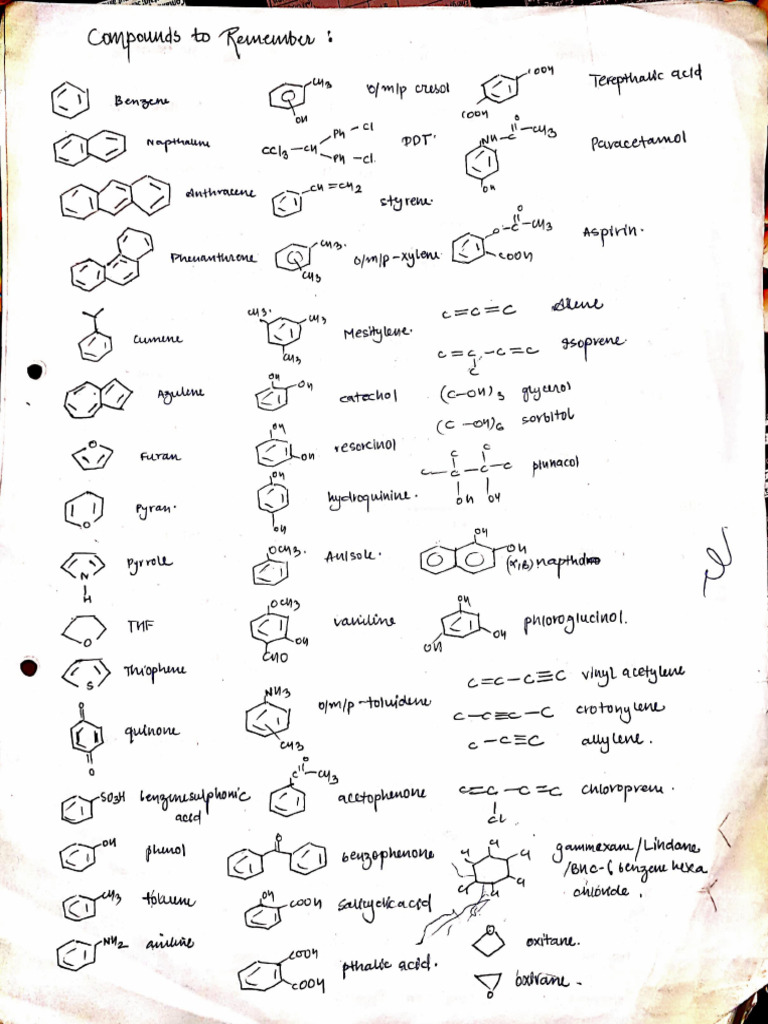 Compounds to Remember :
Benzene
Napthalene
Anthracene
Phenanthrene
Cumene
Azulene
O
Furan
O
Pyran.
N
H
Pyrrole
O
THF
S
Thiophene
O
O
quinone
SO3H
benzenesulphonic
acid
OH
phenol
CH3
toluene
NH2
aniline
CH3
OH
o/m/p cresol
CCl3 – CH
Ph – Cl
Ph – Cl.
DDT.
CH = CH2
styrene.
CH3.
CH3
o/m/p - xylene
CH3.
CH3
CH3
Mesitylene.
OH
OH
catechol
OH
OH
resorcinol
OH
OH
hydroquinine.
OCH3.
Anisole.
OCH3
OH
CHO
vaniline
NH3
CH3
o/m/p - toluidene
C
O
CH3
acetophenone
O
benzophenone
OH
COOH
salicylic acid
COOH
COOH
pthalic acid.
COOH
COOH
Terepthalic acid
NH – C – CH3
O
OH
Paracetamol
O – C – CH3
O
COOH
Aspirin.
C = C = C
Allene
C = C – C = C
C
Isoprene.
(C – OH)3 glycerol
(C – OH)6 sorbitol
C C
C – C – C – C
OH OH
OH
OH
(α,β) napthol
OH
OH
OH
phloroglucinol.
C = C – C ≡ C vinyl acetylene
C – C ≡ C – C crotonylene
C – C ≡ C allylene.
C = C – C = C chloropren.
Cl
Cl
Cl
Cl
Cl
Cl
Cl
gammexane/Lindane
/BHC - 6 benzene hexa
chloride.
O
oxitane.
O
oxirane.